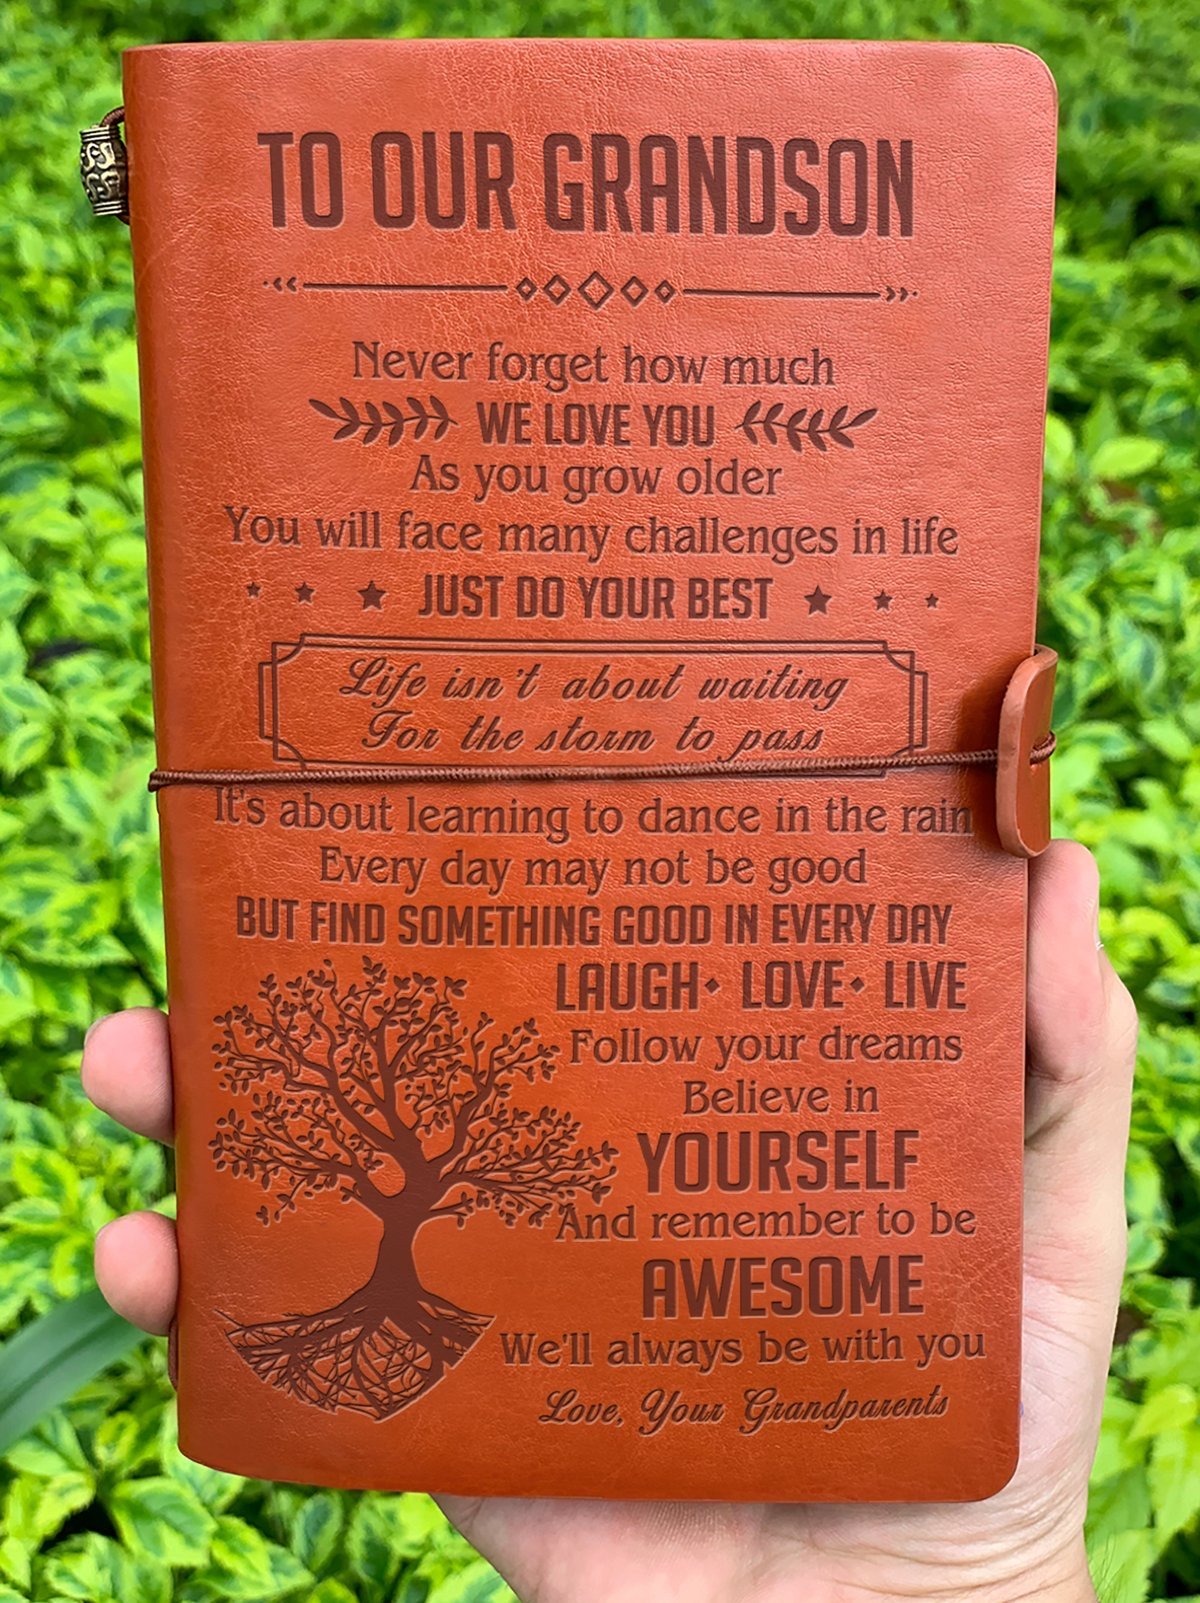 TO OUR GRANDSON
Never forget how much
WE LOVE YOU
As you grow older
You will face many challenges in life
JUST DO YOUR BEST
Life isn't about waiting
For the storm to pass
It's about learning to dance in the rain
Every day may not be good
BUT FIND SOMETHING GOOD IN EVERY DAY
LAUGH • LOVE • LIVE
Follow your dreams
Believe in
YOURSELF
And remember to be
AWESOME
We'll always be with you
Love, Your Grandparents